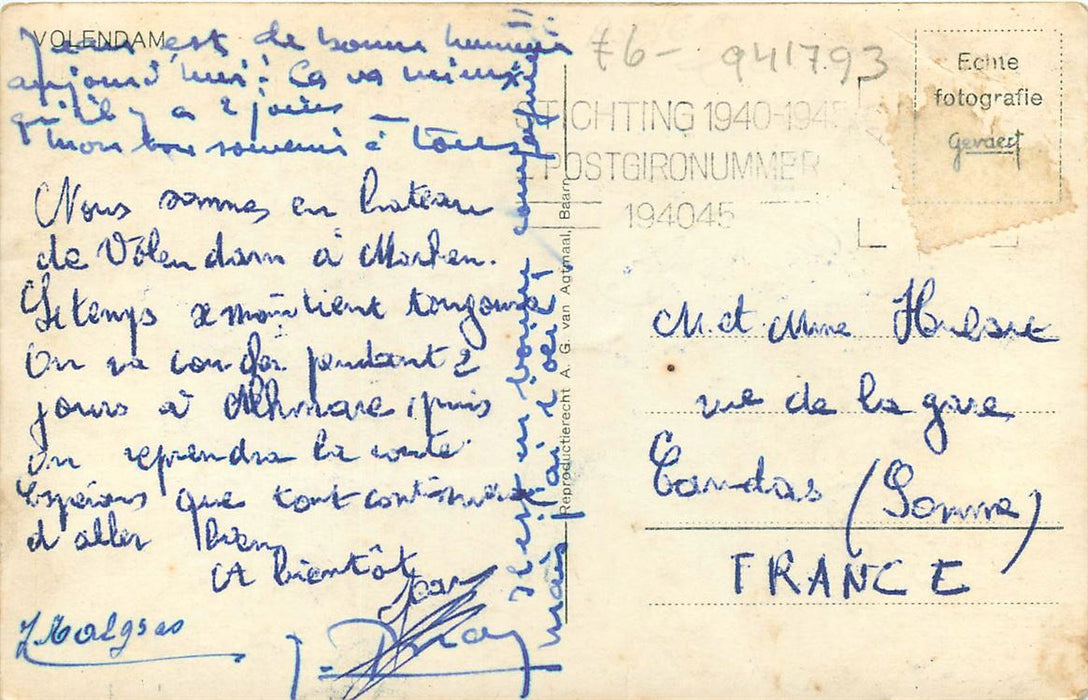 VOLENDAM
Jean est de bonne humeur
aujourd'hui! Ca va mieux
qu'il y a 2 jours
Mon bon souvenir à tous
Nous sommes en bateau
de Volendam à Marken.
Le temps se maintient toujours
On va camper pendant 2
jours à Alkmare, puis
on reprendra la route
Espérons que tout continuera
d'aller bien
A bientôt
Jean
Il est un bon compagnon
mais j'ai l'oeil
Reproductierecht A. G. van Agtmaal, Baarn
76- 941793
STICHTING 1940-1945
POSTGIRONUMMER
194045
Echte
fotografie
Gevaert
M et Mme
rue de la gare
Candas (Somme)
FRANCE